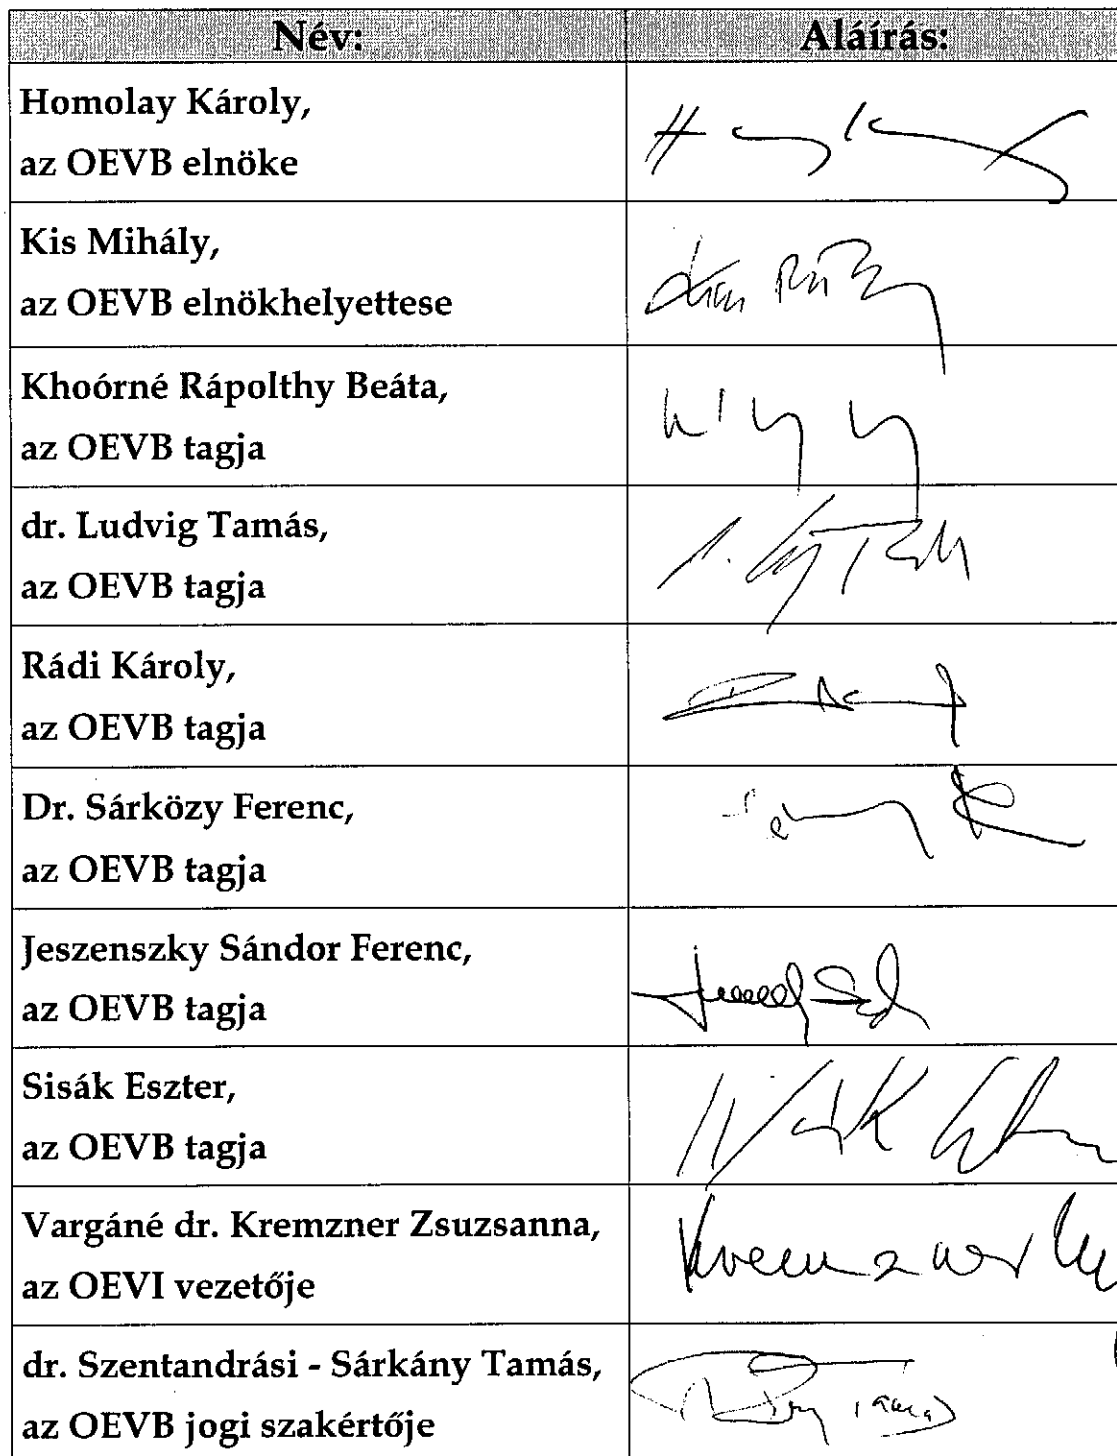 Név: Aláírás:
Homolay Károly,
az OEVB elnöke
Kis Mihály,
az OEVB elnökhelyettese
Khoórné Rápolthy Beáta,
az OEVB tagja
dr. Ludvig Tamás,
az OEVB tagja
Rádi Károly,
az OEVB tagja
Dr. Sárközy Ferenc,
az OEVB tagja
Jeszenszky Sándor Ferenc,
az OEVB tagja
Sisák Eszter,
az OEVB tagja
Vargáné dr. Kremzner Zsuzsanna,
az OEVI vezetője
dr. Szentandrási - Sárkány Tamás,
az OEVB jogi szakértője